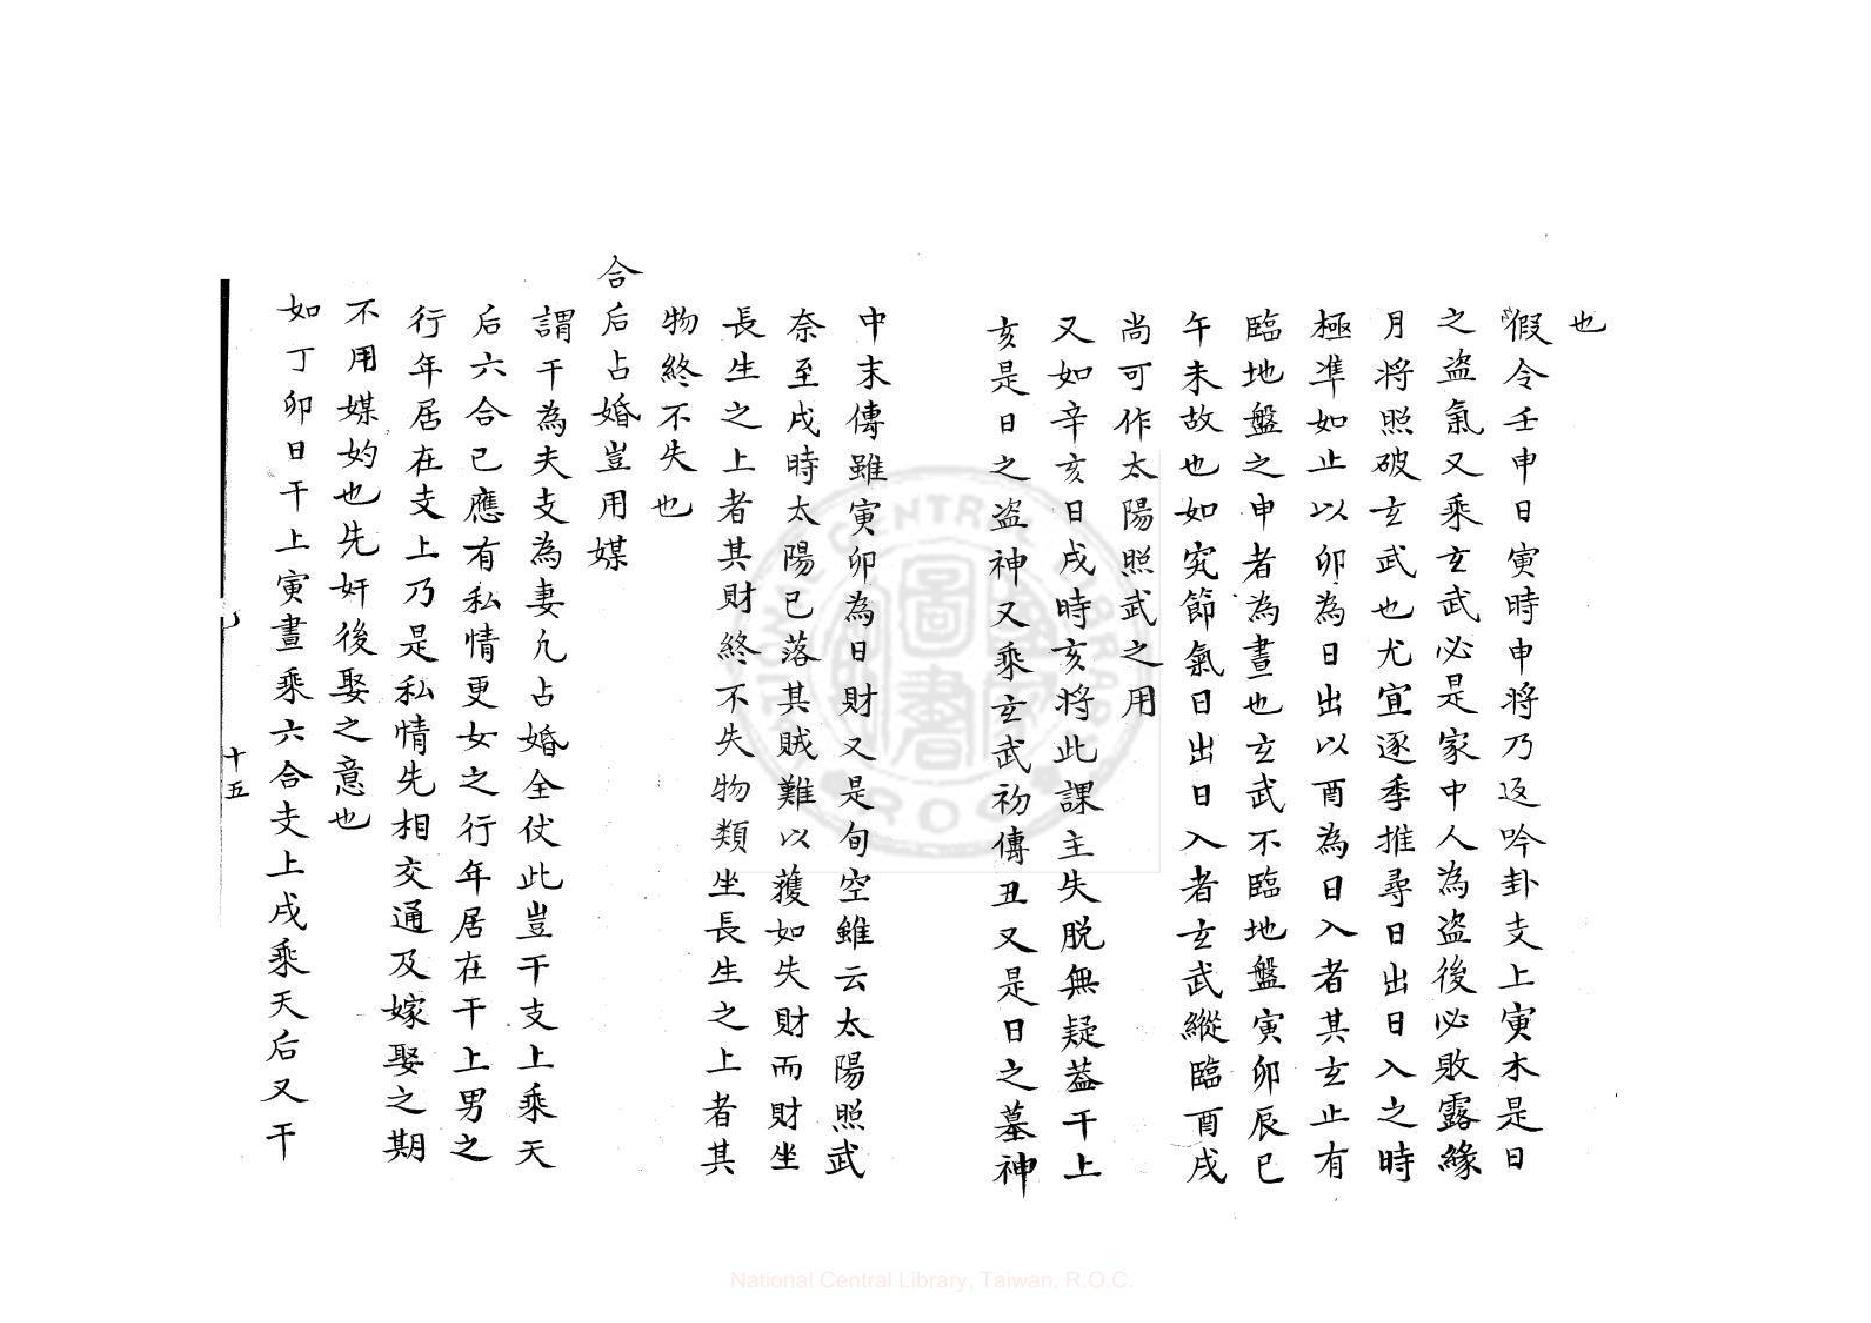 也
假令壬申日寅時申将乃返吟卦支上寅木是日
之盗氣又乘玄武必是家中人為盗後必敗露緣
月将照破玄武也尤宜逐季推尋日出日入之時
極準如止以卯為日出以酉為日入者其玄止有
臨地盤之申者為晝也玄武不臨地盤寅卯辰巳
午未故也如究節氣日出日入者玄武縱臨酉戌
尚可作太陽照武之用
又如辛亥日戌時亥将此課主失脱無疑葢干上
亥是日之盗神又乘玄武初傳丑又是日之墓神
中末傳雖寅卯為日財又是旬空雖云太陽照武
奈至戌時太陽已落其賊難以獲如失財而財坐
長生之上者其財終不失物類坐長生之上者其
物終不失也
合后占婚豈用媒
謂干為夫支為妻凢占婚全仗此豈干支上乘天
后六合已應有私情更女之行年居在干上男之
行年居在支上乃是私情先相交通及嫁娶之期
不用媒妁也先奸後娶之意也
如丁卯日干上寅晝乘六合支上戌乘天后又干
十五
National Central Library, Taiwan, R.O.C.